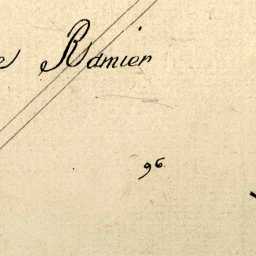 e Ramier
96.